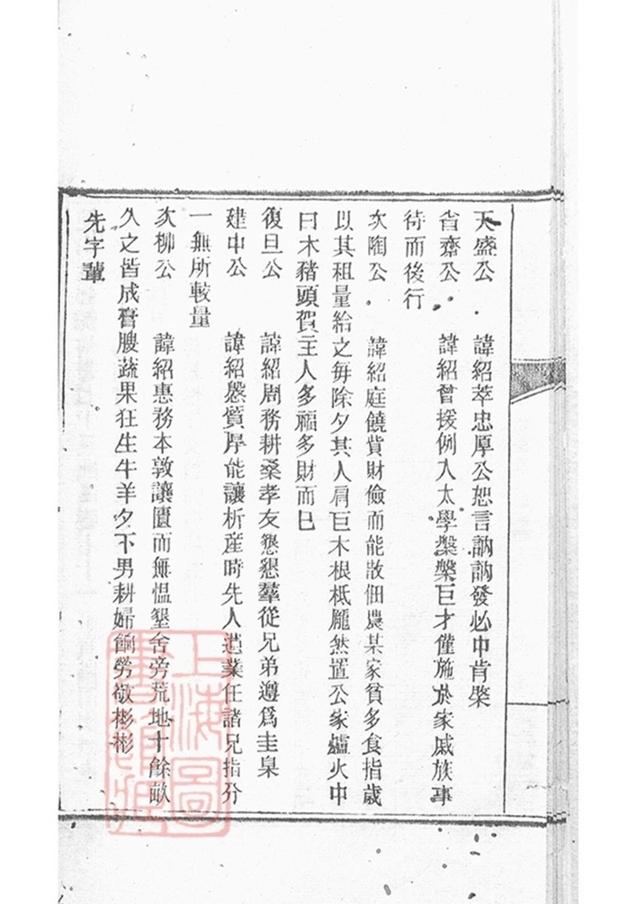 天盛公　諱紹萃忠厚公恕言訥訥發必中肯棨
省齋公　諱紹曾援例入太學槃槃巨才僅施於家戚族事
待而後行
次陶公　諱紹庭饒貲財儉而能散佃農某家貧多食指歲
以其租量給之每除夕其人肩巨木根柢龐然置公家爐火中
曰木豬頭賀主人多福多財而已
復旦公　諱紹周務耕桑孝友懇懇羣從兄弟遵爲圭臬
建中公　諱紹慇質厚能讓析產時先人遺業任諸兄指分
一無所較量
次柳公　諱紹惠務本敦讓匱而無慍墾舍旁荒地十餘畝
久之皆成膏腴蔬果狂生牛羊夕下男耕婦餉勞敬彬彬
先字輩
上海圖
書館藏